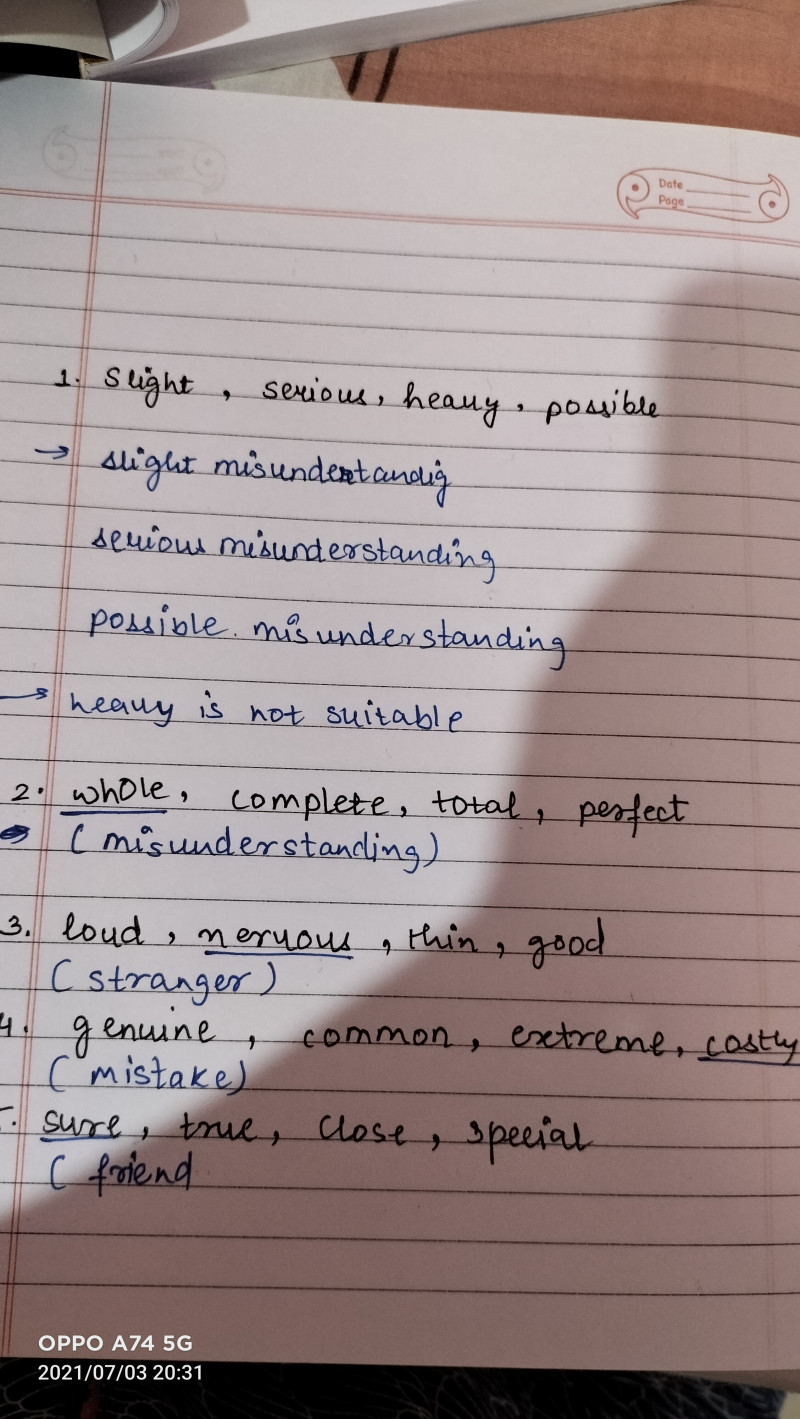 Date
Page
1. Slight, serious, heavy, possible
→ slight misundertandig
serious misunderstanding
possible. misunderstanding
→ heavy is not suitable
2. whole, complete, total, perfect
(misunderstanding)
3. loud, nervous, thin, good
(stranger)
4. genuine, common, extreme, costly
(mistake)
sure, true, close, special
(friend
OPPO A74 5G
2021/07/03 20:31